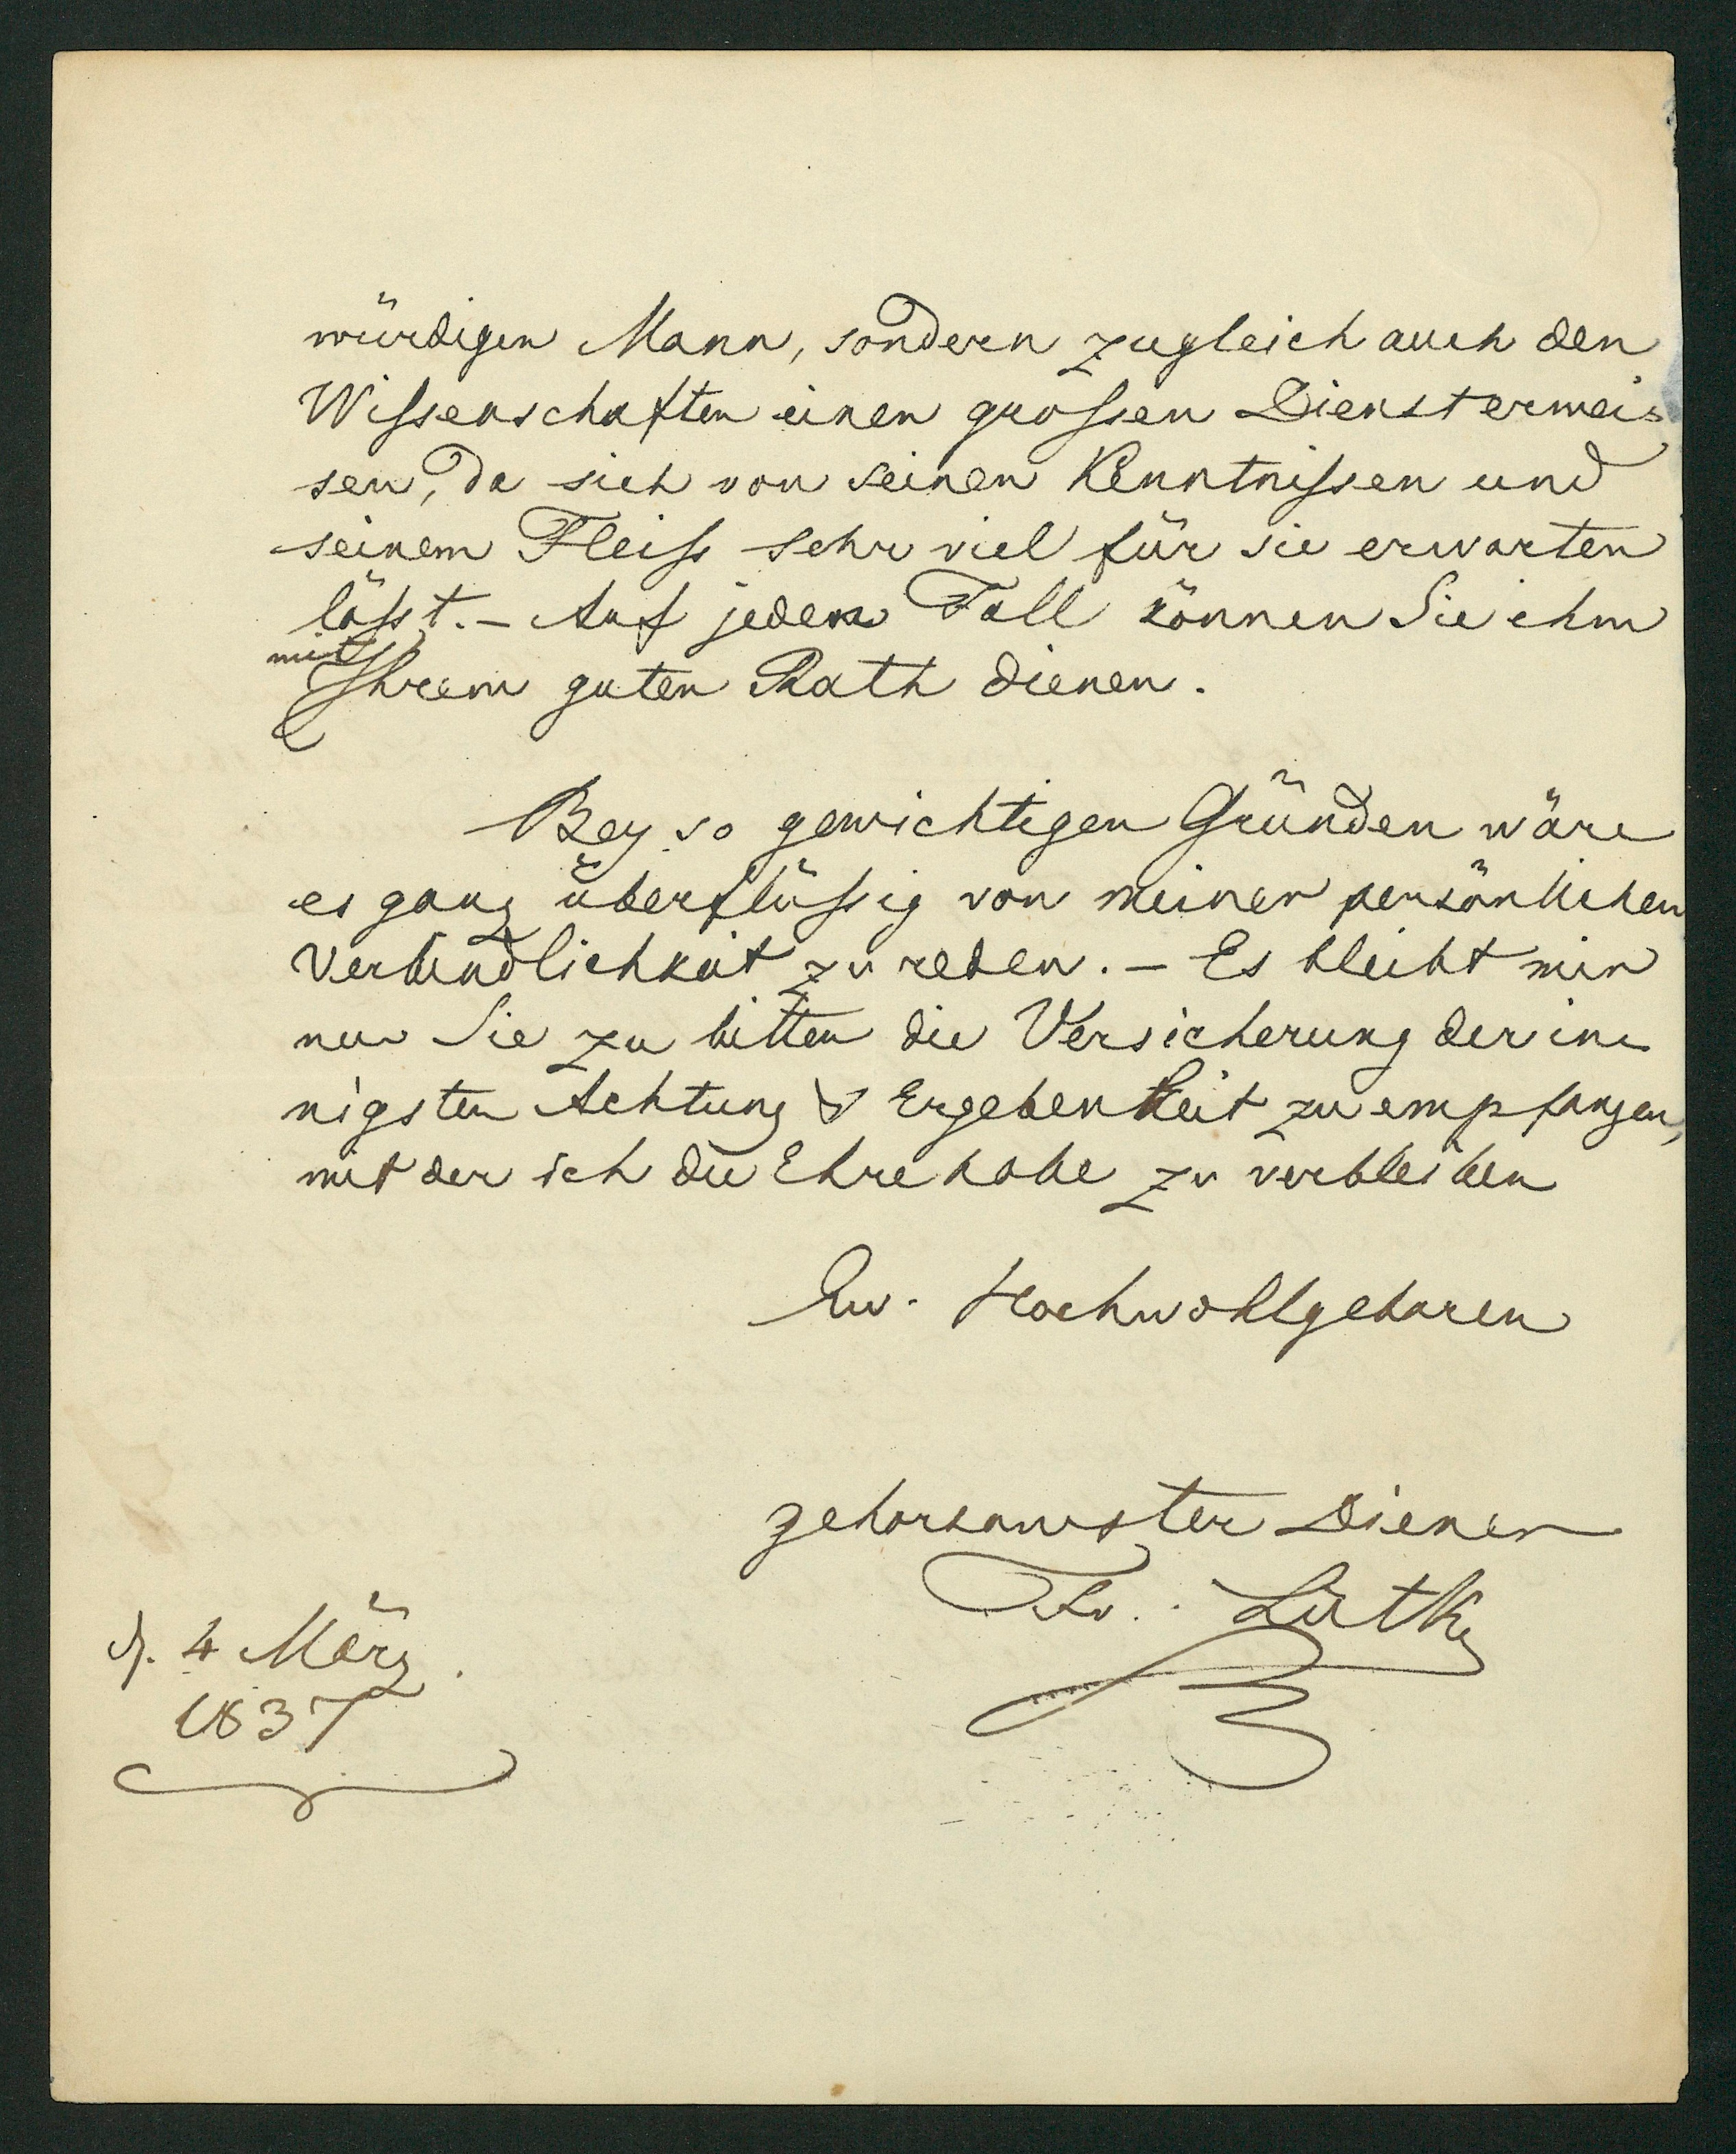 würdigen Mann, sondern zugleich auch den
Wiſsenschaften einen groſsen Dienst erwei=
sen, da sich von seinen Kenntniſsen und
seinem Fleiſs sehr viel für sie erwarten
läſst. – Auf jeden Fall können Sie ihm
mit
Ihrem guten Rath dienen.
Bey so gewichtigen Gründen wäre
es ganz überflüſsig von meiner persönlichen
Verbindlichkeit zu reden. – Es bleibt mir
nur Sie zu bitten die Versicherung der in
nigsten Achtung & Ergebenheit zu empfangen,
mit der ich die Ehre habe zu verbleiben
Ew. Hochwohlgeboren
gehorsamster Diener
Fr. Lütke
d. 4 März.
1837